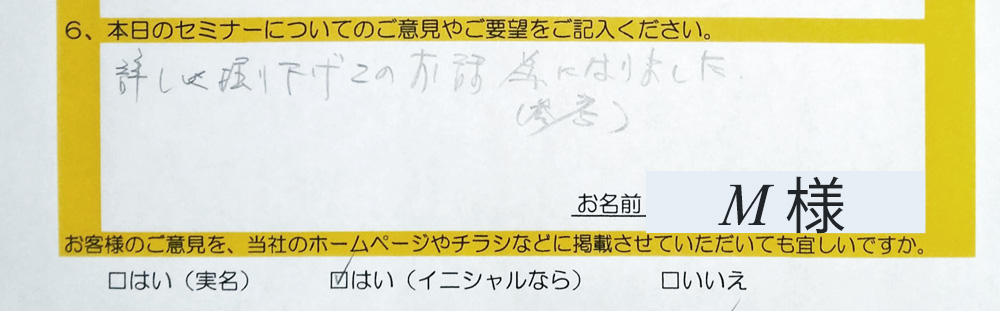 6、本日のセミナーについてのご意見やご要望をご記入ください。
詳しく掘り下げてのお話 為になりました。
(参考)
お名前 M 様
お客様のご意見を、当社のホームページやチラシなどに掲載させていただいても宜しいですか。
□はい（実名） ☑はい（イニシャルなら） □いいえ